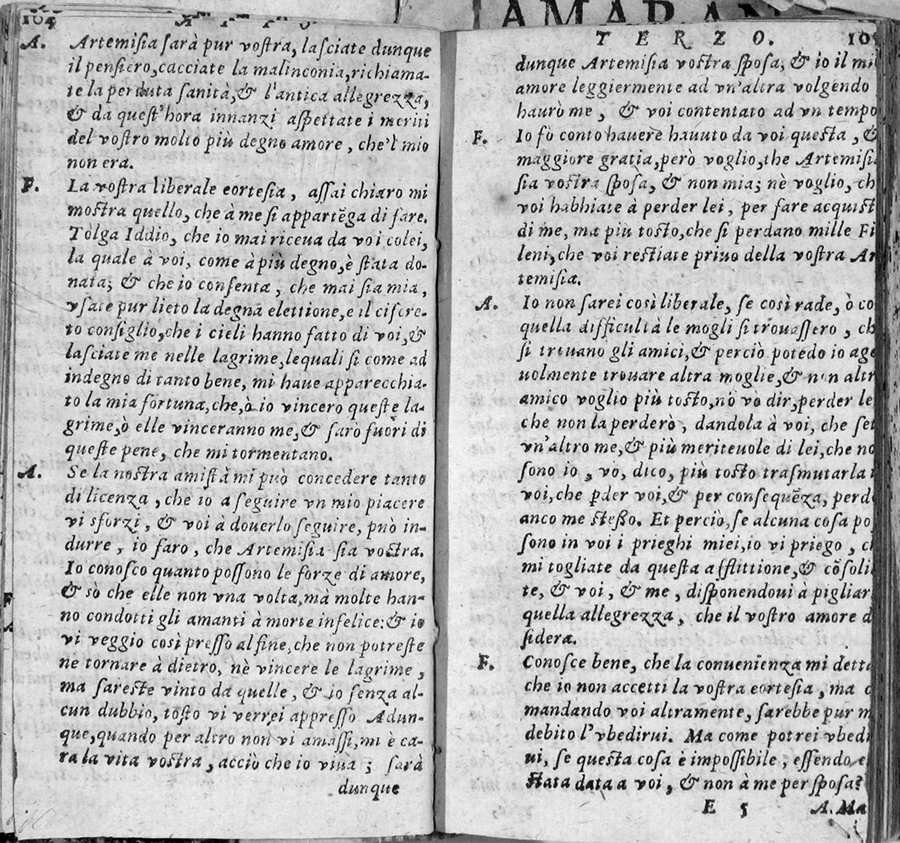 AMARAN
104 ATTO
A. Artemisia sarà pur vostra, lasciate dunque
il pensiero, cacciate la malinconia, richiama-
te la perduta sanità, & l'antica allegrezza,
& da quest'hora innanzi aspettate i meriti
del vostro molto più degno amore, che'l mio
non era.
F. La vostra liberale eortesia, assai chiaro mi
mostra quello, che à me si appartēga di fare.
Tolga Iddio, che io mai riceua da voi colei,
la quale à voi, come à più degno, è stata do-
nata; & che io consenta, che mai sia mia,
vsate pur lieto la degna elettione, e il ciscre-
to consiglio, che i cieli hanno fatto di voi, &
lasciate me nelle lagrime, lequali si come ad
indegno di tanto bene, mi haue apparecchia-
to la mia fortuna, che, ò io vincero queste la-
grime, ò elle vinceranno me, & sarò fuori di
queste pene, che mi tormentano.
A. Se la nostra amistà mi può concedere tanto
di licenza, che io a seguire vn mio piacere
vi sforzi, & voi à douerlo seguire, può in-
durre, io faro, che Artemisia sia vostra.
Io conosco quanto possono le forze di amore,
& sò che elle non vna volta, mà molte han-
no condotti gli amanti à morte infelice; & io
vi veggio così presso al fine, che non potreste
ne tornare à dietro, nè vincere le lagrime,
ma sareste vinto da quelle, & io senza al-
cun dubbio, tosto vi verrei appresso Adun-
que, quando per altro non vi amassi, mi è ca-
ra la vita vostra, acciò che io viua; sarà
dunque
TERZO. 10
dunque Artemisia vostra sposa, & io il mi
amore leggiermente ad vn'altra volgendo
haurò me, & voi contentato ad vn tempo
F. Io fò conto hauere hauuto da voi questa, &
maggiore gratia, però voglio, the Artemisi
sia vostra sposa, & non mia; nè voglio, ch
voi habbiate à perder lei, per fare acquist
di me, ma più tosto, che si perdano mille Fi
leni, che voi restiate priuo della vostra Ar
temisia.
A. Io non sarei così liberale, se così rade, ò co
quella difficultà le mogli si trouassero, ch
si trouano gli amici, & perciò potēdo io age
uolmente trouare altra moglie, & non altr
amico voglio più tosto, nō vo dir, perder le
che non la perderò, dandola à voi, che set
vn'altro me, & più meriteuole di lei, che no
sono io, vo, dico, più tosto trasmutarla i
voi, che p̄der voi, & per consequēza, perd
anco me stesso. Et perciò, se alcuna cosa po
sono in voi i prieghi miei, io vi priego, c
mi togliate da questa afflittione, & cōsoli
te, & voi, & me, disponendoui à pigliar
quella allegrezza, che il vostro amore d
sidera.
F. Conosce bene, che la conuenienza mi detta
che io non accetti la vostra eortesia, ma c
mandando voi altramente, sarebbe pur m
debito l'vbedirui. Ma come potrei vbedi
ui, se questa cosa è impossibile, essendo e
stata data a voi, & non à me per sposa?
E 5 A. Ma